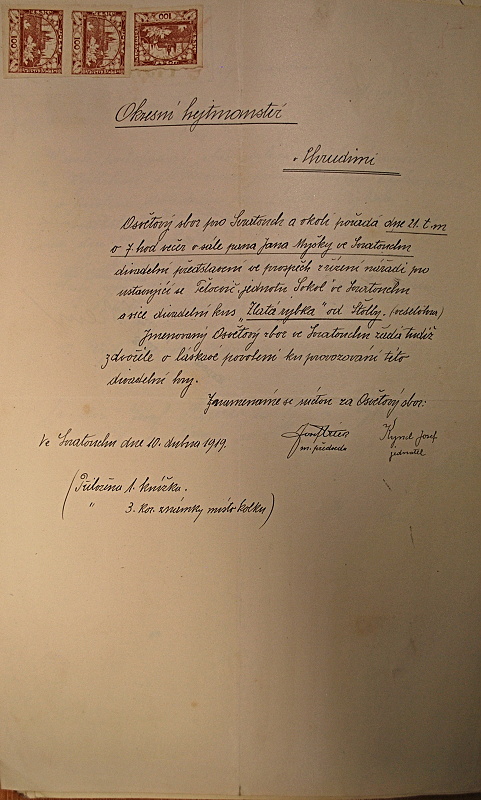 100
100
100
Okresní hejtmanství
v Chrudimi
Osvětový sbor pro Svratouch a okolí pořádá dne 21. t.m
o 7 hod večer v sále pana Jana Myšky ve Svratouchu
divadelní představení ve prospěch zřízení nářadí pro
ustavující se Tělocvič. jednotu Sokol ve Svratouchu
a sice divadelní kus „Zlatá rybka" od Štolby. (veselohra)
Jmenovaný Osvětový sbor ve Svratouchu žádá tudíž
zdvořile o láskavé povolení ku provozování této
divadelní hry.
Znamenáme se v úctě za Osvětový sbor:
Ve Svratouchu dne 10. dubna 1919.
Josef
Kynd Josef
předseda
jednatel
(Přiložena 1. knížka.
„ 3. Kor. známky místo kolku)